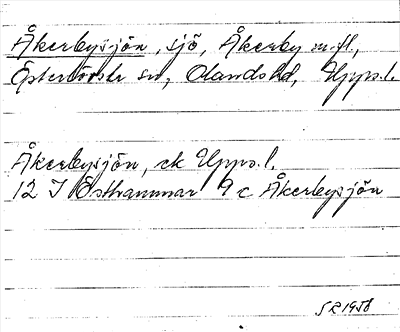 Åkerbysjön, sjö, Åkerby m.fl.,
Österlövsta sn, Olands hd, Upps.l.
Åkerbysjön, ek Upps.l.
12 I Östhammar 9 c Åkerbysjön
SR 1958